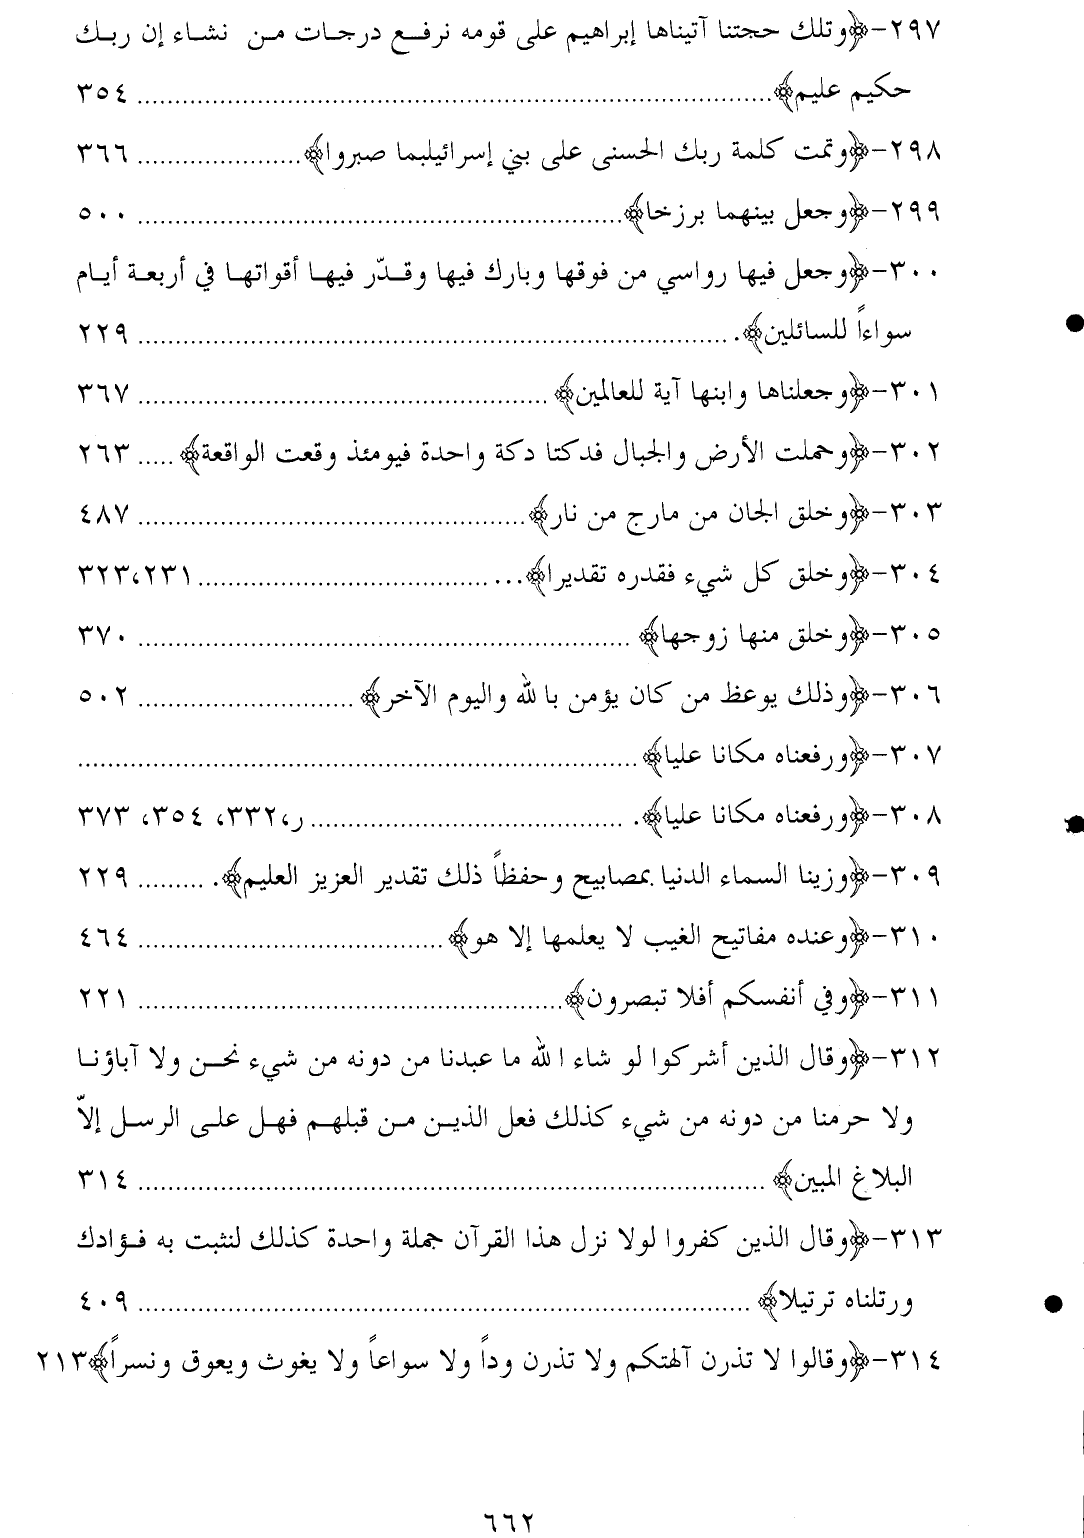 ٢٩٧-﴿وتلك حجتنا آتيناها إبراهيم على قومه نرفع درجات من نشاء إن ربك
حكيم عليم﴾ ................ ٣٥٤
٢٩٨-﴿وتمت كلمة ربك الحسنى على بني إسرائيلبما صبروا﴾ ................ ٣٦٦
٢٩٩-﴿وجعل بينهما برزخا﴾ ................ ٥٠٠
٣٠٠-﴿وجعل فيها رواسي من فوقها وبارك فيها وقدّر فيها أقواتها في أربعة أيام
سواءاً للسائلين﴾. ................ ٢٢٩
٣٠١-﴿وجعلناها وابنها آية للعالمين﴾ ................ ٣٦٧
٣٠٢-﴿وحملت الأرض والجبال فدكتا دكة واحدة فيومئذ وقعت الواقعة﴾ ..... ٢٦٣
٣٠٣-﴿وخلق الجان من مارج من نار﴾ ................ ٤٨٧
٣٠٤-﴿وخلق كل شيء فقدره تقديرا﴾ ................ ٣٢٣،٢٣١
٣٠٥-﴿وخلق منها زوجها﴾ ................ ٣٧٠
٣٠٦-﴿وذلك يوعظ من كان يؤمن بالله واليوم الآخر﴾ ................ ٥٠٢
٣٠٧-﴿ورفعناه مكانا عليا﴾ ................
٣٠٨-﴿ورفعناه مكانا عليا﴾. ................ ر،٣٣٢، ٣٥٤، ٣٧٣
٣٠٩-﴿وزينا السماء الدنيا بمصابيح وحفظاً ذلك تقدير العزيز العليم﴾. ......... ٢٢٩
٣١٠-﴿وعنده مفاتيح الغيب لا يعلمها إلا هو﴾ ................ ٤٦٤
٣١١-﴿وفي أنفسكم أفلا تبصرون﴾ ................ ٢٢١
٣١٢-﴿وقال الذين أشركوا لو شاء الله ما عبدنا من دونه من شيء نحن ولا آباؤنا
ولا حرمنا من دونه من شيء كذلك فعل الذين من قبلهم فهل على الرسل إلاّ
البلاغ المبين﴾ ................ ٣١٤
٣١٣-﴿وقال الذين كفروا لولا نزل هذا القرآن جملة واحدة كذلك لنثبت به فؤادك
ورتلناه ترتيلا﴾ ................ ٤٠٩
٣١٤-﴿وقالوا لا تذرن آلهتكم ولا تذرن وداً ولا سواعاً ولا يغوث ويعوق ونسراً﴾٢١٣
٦٦٢